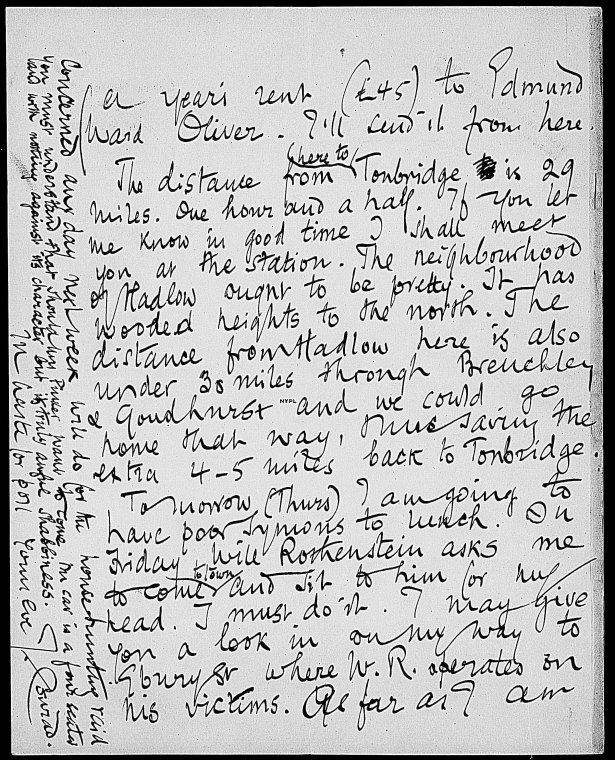 a year's rent (£45) to Edmund
Ward Oliver. I'll send it from here.
The distance from (here to) Tonbridge is 29
miles. One hour and a half. If you let
me know in good time I shall meet
you at the station. The neighbourhood
of Hadlow ought to be pretty. It has
wooded heights to the north. The
distance from Hadlow here is also
under 30 miles through Brenchley
& Goudhurst and we could go
NYPL
home that way, thus saving the
extra 4-5 miles back to Tonbridge.
To morrow (Thurs) I am going to
have poor Symons to lunch. On
Friday Will Rothenstein asks me
to come to town and sit to him for my
head. I must do it. I may give
you a look in on my way to
Ebury St where W. R. operates on
his victims. As far as I am
Concerned any day next week will do for the house hunting raid
You must understand that should my Pinker want to come my car is a four seater
laid with nothing against its character but its truly awful shabbiness.
In haste for post Yours ever J. Conrad.